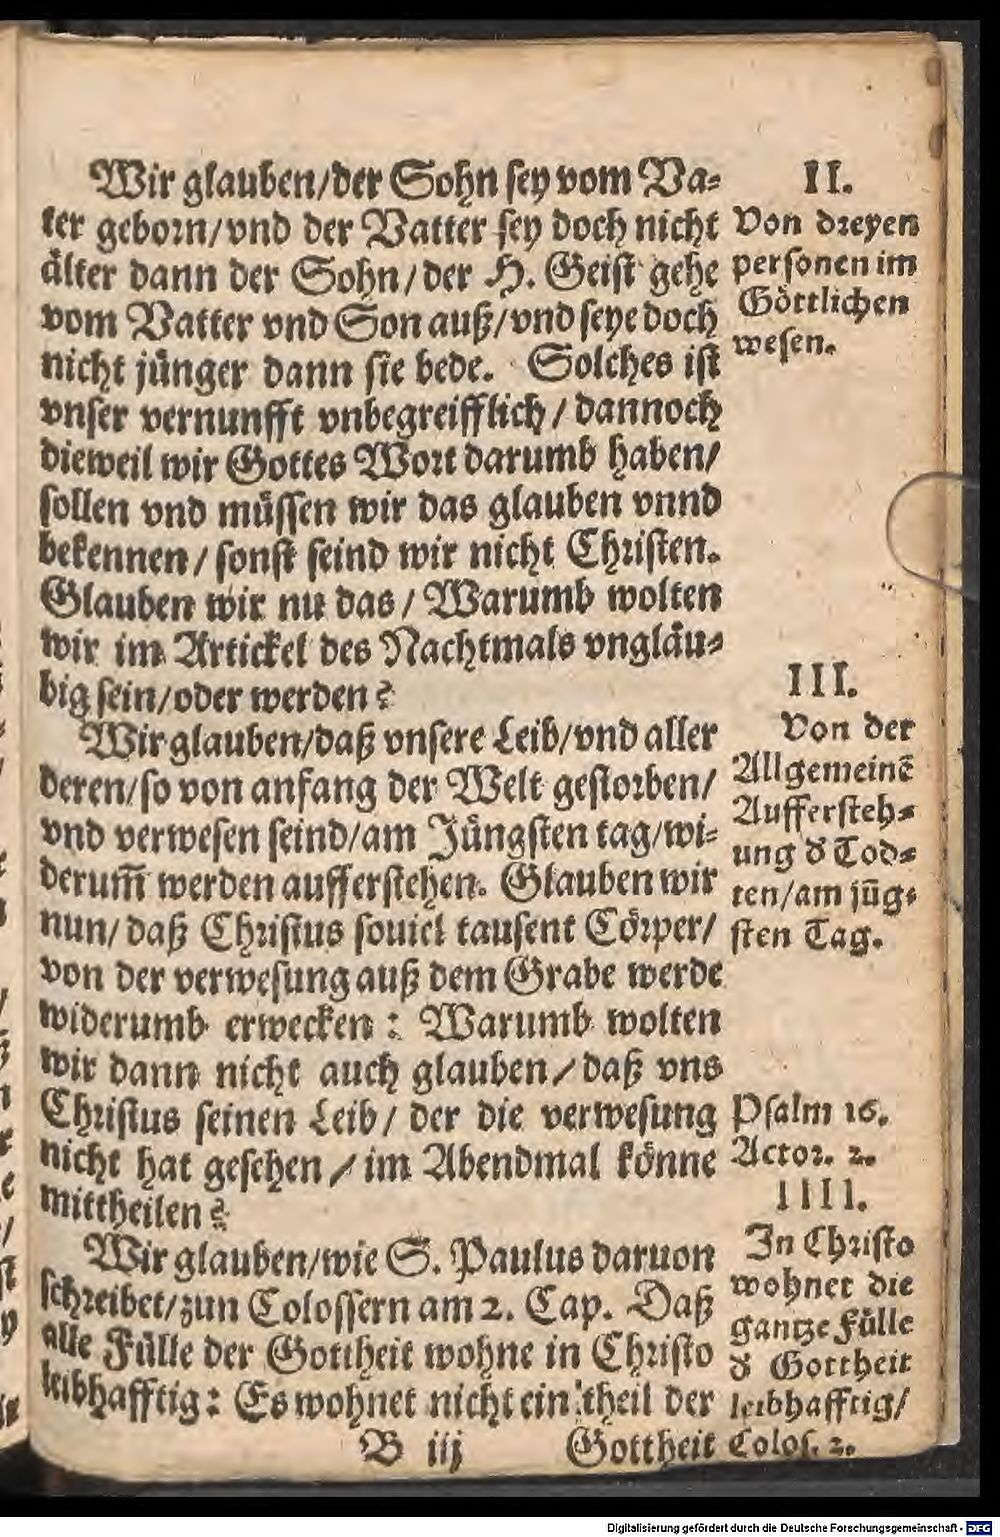 Wir glauben/der Sohn sey vom Va-
ter geborn/vnd der Vatter sey doch nicht
älter dann der Sohn/der H. Geist gehe
vom Vatter vnd Son auß/vnd seye doch
nicht jünger dann sie bede. Solches ist
vnser vernunfft vnbegreifflich/dannoch
dieweil wir Gottes Wort darumb haben/
sollen vnd müssen wir das glauben vnnd
bekennen/sonst seind wir nicht Christen.
Glauben wir nu das/Warumb wolten
wir im Artickel des Nachtmals vngläu-
big sein/oder werden?
II.
Von dreyen
personen im
Göttlichen
wesen.
Wir glauben/daß vnsere Leib/vnd aller
deren/so von anfang der Welt gestorben/
vnd verwesen seind/am Jüngsten tag/wi-
derum̄ werden aufferstehen. Glauben wir
nun/daß Christus souiel tausent Cörper/
von der verwesung auß dem Grabe werde
widerumb erwecken: Warumb wolten
wir dann nicht auch glauben/daß vns
Christus seinen Leib/der die verwesung
nicht hat gesehen/im Abendmal könne
mittheilen?
III.
Von der
Allgemeinē
Aufferste­h-
ung d Tod-
ten/am jūg-
sten Tag.
Psalm 16.
Actor. 2.
Wir glauben/wie S. Paulus daruon
schreibet/zun Colossern am 2. Cap. Daß
alle Fülle der Gottheit wohne in Christo
leibhafftig: Es wohnet nicht ein theil der
IIII.
In Christo
wohnet die
gantze Fülle
d Gottheit
leibhafftig/
Colos. 2.
B iij Gottheit
Digitalisierung gefördert durch die Deutsche Forschungsgemeinschaft - DFG